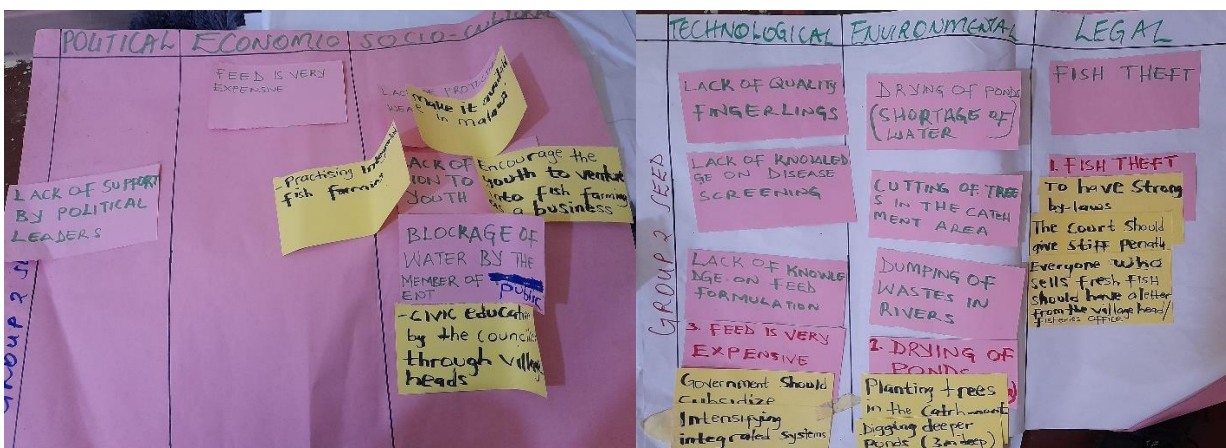 POLITICAL
ECONOMIC
SOCIO-
FEED IS VERY
EXPENSIVE
make it available
in malawi
- Practising Integrated
fish farming
LACK OF SUPPORT
BY POLITICAL
LEADERS
LACK OF
YOUTH
Encourage the
youth to venture
into fish farming
as a business
BLOCKAGE OF
WATER BY THE
MEMBER OF
public
- CIVIC education
by the council
through village
heads
GROUP 2
TECHNOLOGICAL
ENVIRONMENTAL
LEGAL
LACK OF QUALITY
FINGERLINGS
LACK OF KNOWLED
GE ON DISEASE
SCREENING
LACK OF KNOWLE
DGE ON FEED
FORMULATION
3. FEED IS VERY
EXPENSIVE
Government should
subsidize
Intensifying
integrated systems
DRYING OF PONDS
(SHORTAGE OF
WATER)
CUTTING OF TREE
S IN THE CATCH
MENT AREA
DUMPING OF
WASTES IN
RIVERS
2. DRYING OF
PONDS
Planting trees
in the catchment
Digging deeper
ponds (3m deep)
FISH THEFT
1. FISH THEFT
To have strong
by-laws
The court should
give stiff
Everyone who
sells fresh fish
should have a letter
from the village head/
fisheries office
GROUP 2 SEED